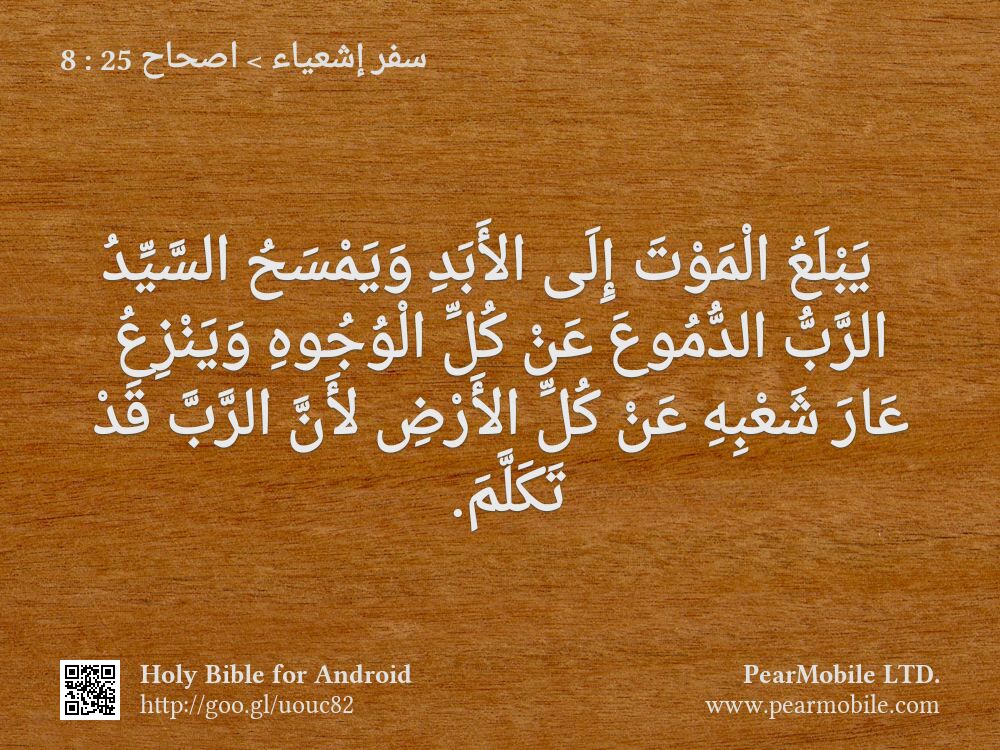 سفر إشعياء > اصحاح 25 : 8
يَبْلَعُ الْمَوْتَ إِلَى الأَبَدِ وَيَمْسَحُ السَّيِّدُ
الرَّبُّ الدُّمُوعَ عَنْ كُلِّ الْوُجُوهِ وَيَنْزِعُ
عَارَ شَعْبِهِ عَنْ كُلِّ الأَرْضِ لأَنَّ الرَّبَّ قَدْ
تَكَلَّمَ.
Holy Bible for Android
http://goo.gl/uouc82
PearMobile LTD.
www.pearmobile.com